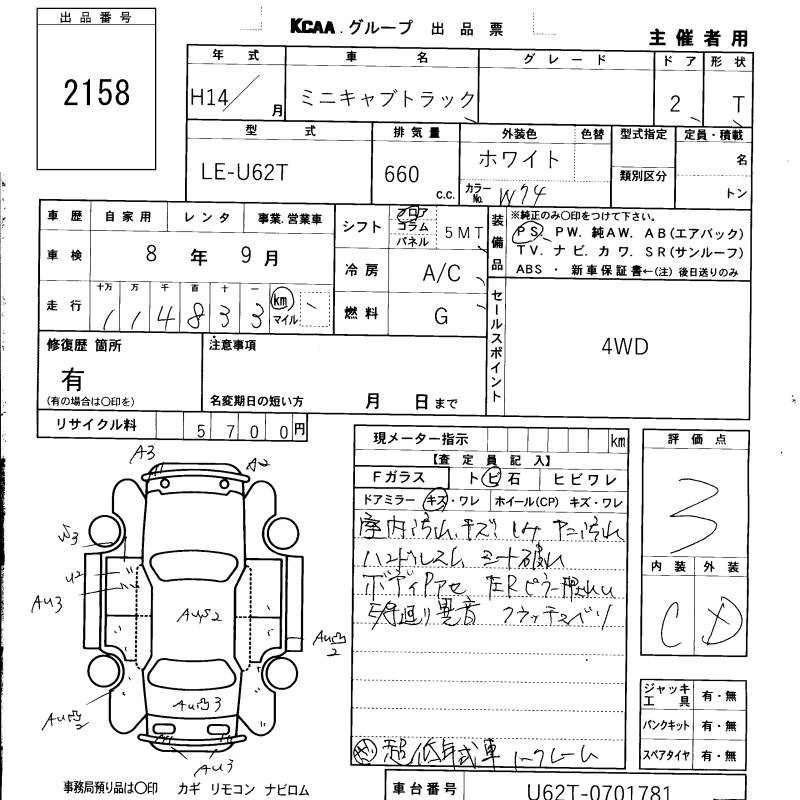 出品番号
2158
KCAA.グループ 出品票
主催者用
年式 車名 グレード ドア 形状
H14/ 月 ミニキャブトラック 2 T
型式 排気量 外装色 色替 型式指定 定員・積載
LE-U62T 660 c.c. ホワイト 名
カラーNo. W74 類別区分 トン
車歴 自家用 レンタ 事業.営業車
シフト フロア コラム パネル 5MT
装備品 ※純正のみ○印をつけて下さい。
PS. PW. 純AW. AB(エアバック)
TV. ナビ. カワ. SR(サンルーフ)
ABS ・ 新車保証書←(注) 後日送りのみ
車検 8 年 9 月
冷房 A/C
走行 十万 万 千 百 十 一
1 1 4 8 3 3 km マイル
燃料 G
セールスポイント 4WD
修復歴 箇所 有
(有の場合は○印を)
注意事項
名変期日の短い方 月 日まで
リサイクル料 5 7 0 0 円
現メーター指示 km
【査定員記入】
Fガラス トビ石 ヒビワレ
ドアミラー キズ・ワレ ホイール(CP) キズ・ワレ
室内汚れ キズ
ハンドルスム シート破れ
ボディ
異音
超低年式車 クレーム
評価点
3
内装 外装
C D
A3
A2
W3
U2
AU3
AU凸2
AU凸3
AU凸2
AU3
ジャッキ 工具 有・無
パンクキット 有・無
スペアタイヤ 有・無
事務局預り品は○印 カギ リモコン ナビロム
車台番号 U62T-0701781